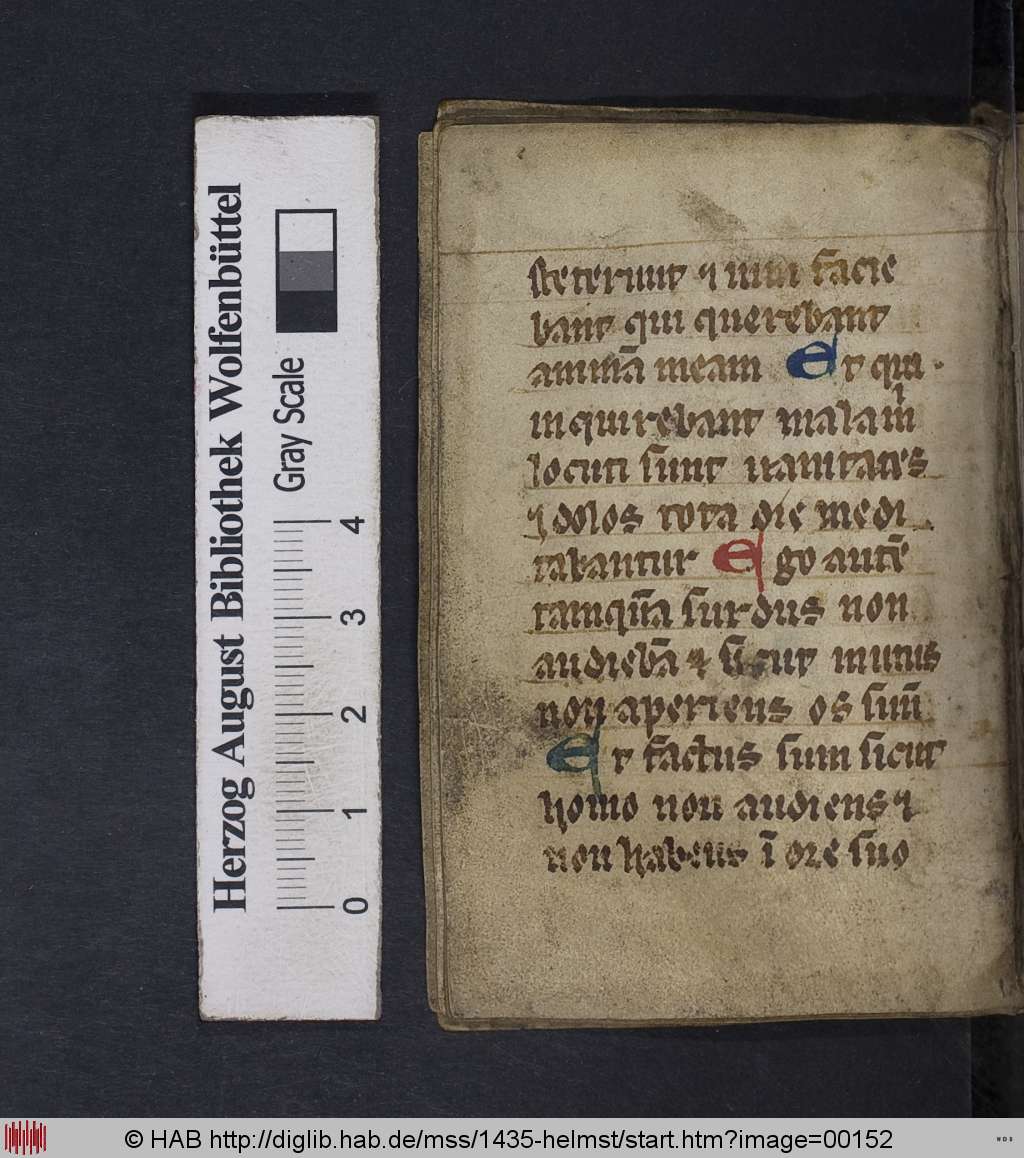 Herzog August Bibliothek Wolfenbüttel
Gray Scale
0 1 2 3 4
steterunt ⁊ uim facie
bant qui querebant
animā meam Et qui
inquirebant mala m̄
locuti sunt uanitates
⁊ dolos tota die medi
tabantur Ego autē
tamquā surdus non
audiebā ⁊ sicut mutus
non aperiens os suū
Et factus sum sicut
homo non audiens ⁊
non habens ī ore suo
© HAB http://diglib.hab.de/mss/1435-helmst/start.htm?image=00152